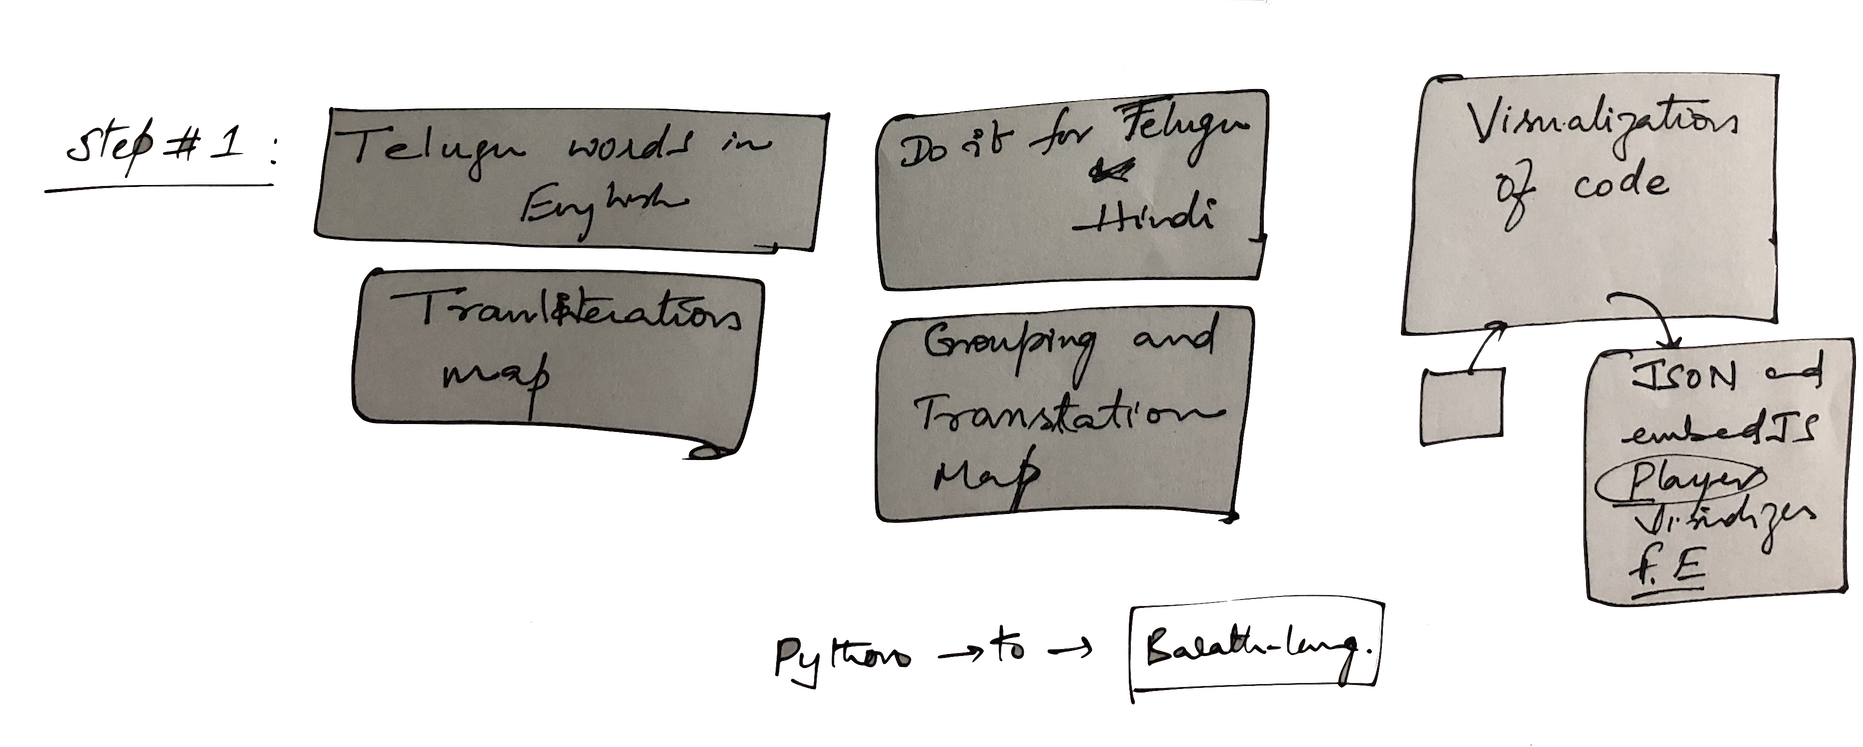 Step # 1 :
Telugu words in
English
Transliterations
map
Do it for Telugu
Hindi
Grouping and
Translation
Map
Visualizations
of code
JSON and
embed JS
Player
Visualizes
f.E
Python → to → Barath-lang.